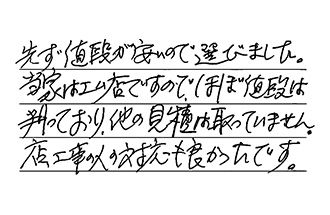 先ず値段が安いので選びました。
当家は工ム店ですので、ほぼ値段は
判っており、他の見積は取っていません。
店、工事の人の対応も良かったです。